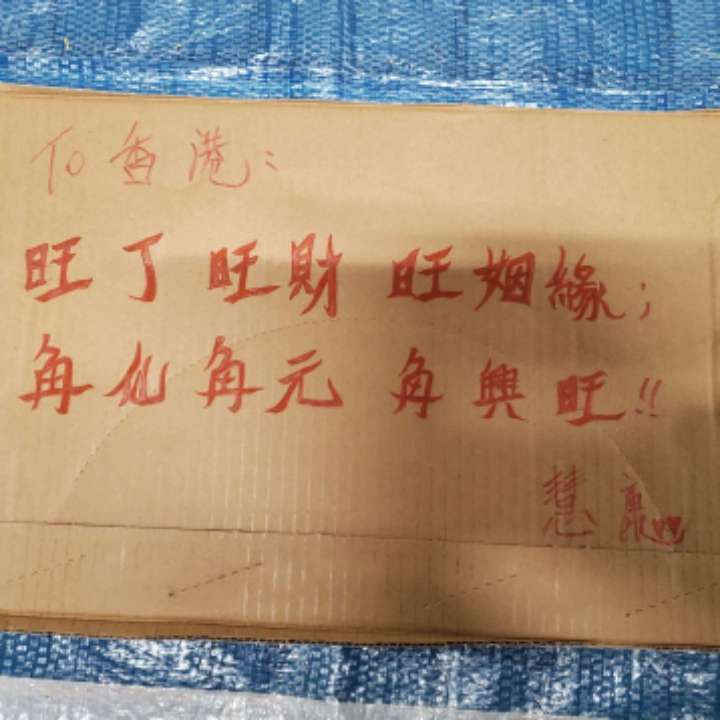 To 香港:
旺丁旺財 旺姻緣;
每仙每元 每興旺!!
慧贏